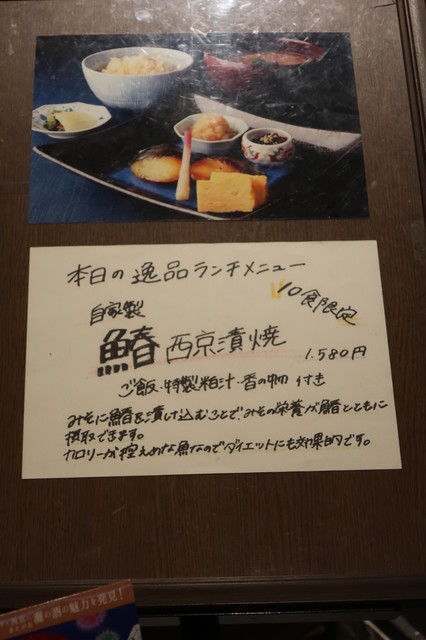 本日の逸品ランチメニュー
10食限定
自家製
鰆 西京漬焼
1.580円
ご飯・特製粕汁・香の物 付き
みそに鰆を漬け込むことでみその栄養が鰆とともに
摂取できます。
カロリーが控えめな魚なのでダイエットにも効果的です。
灘の酒の魅力を発見!